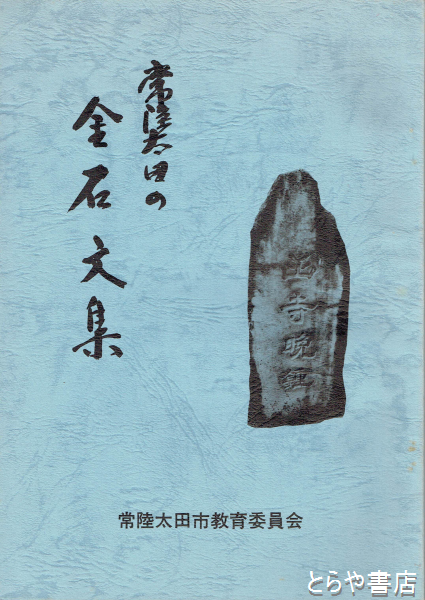 常陸太田の
金石文集
寺晩鐘
常陸太田市教育委員会
とらや書店